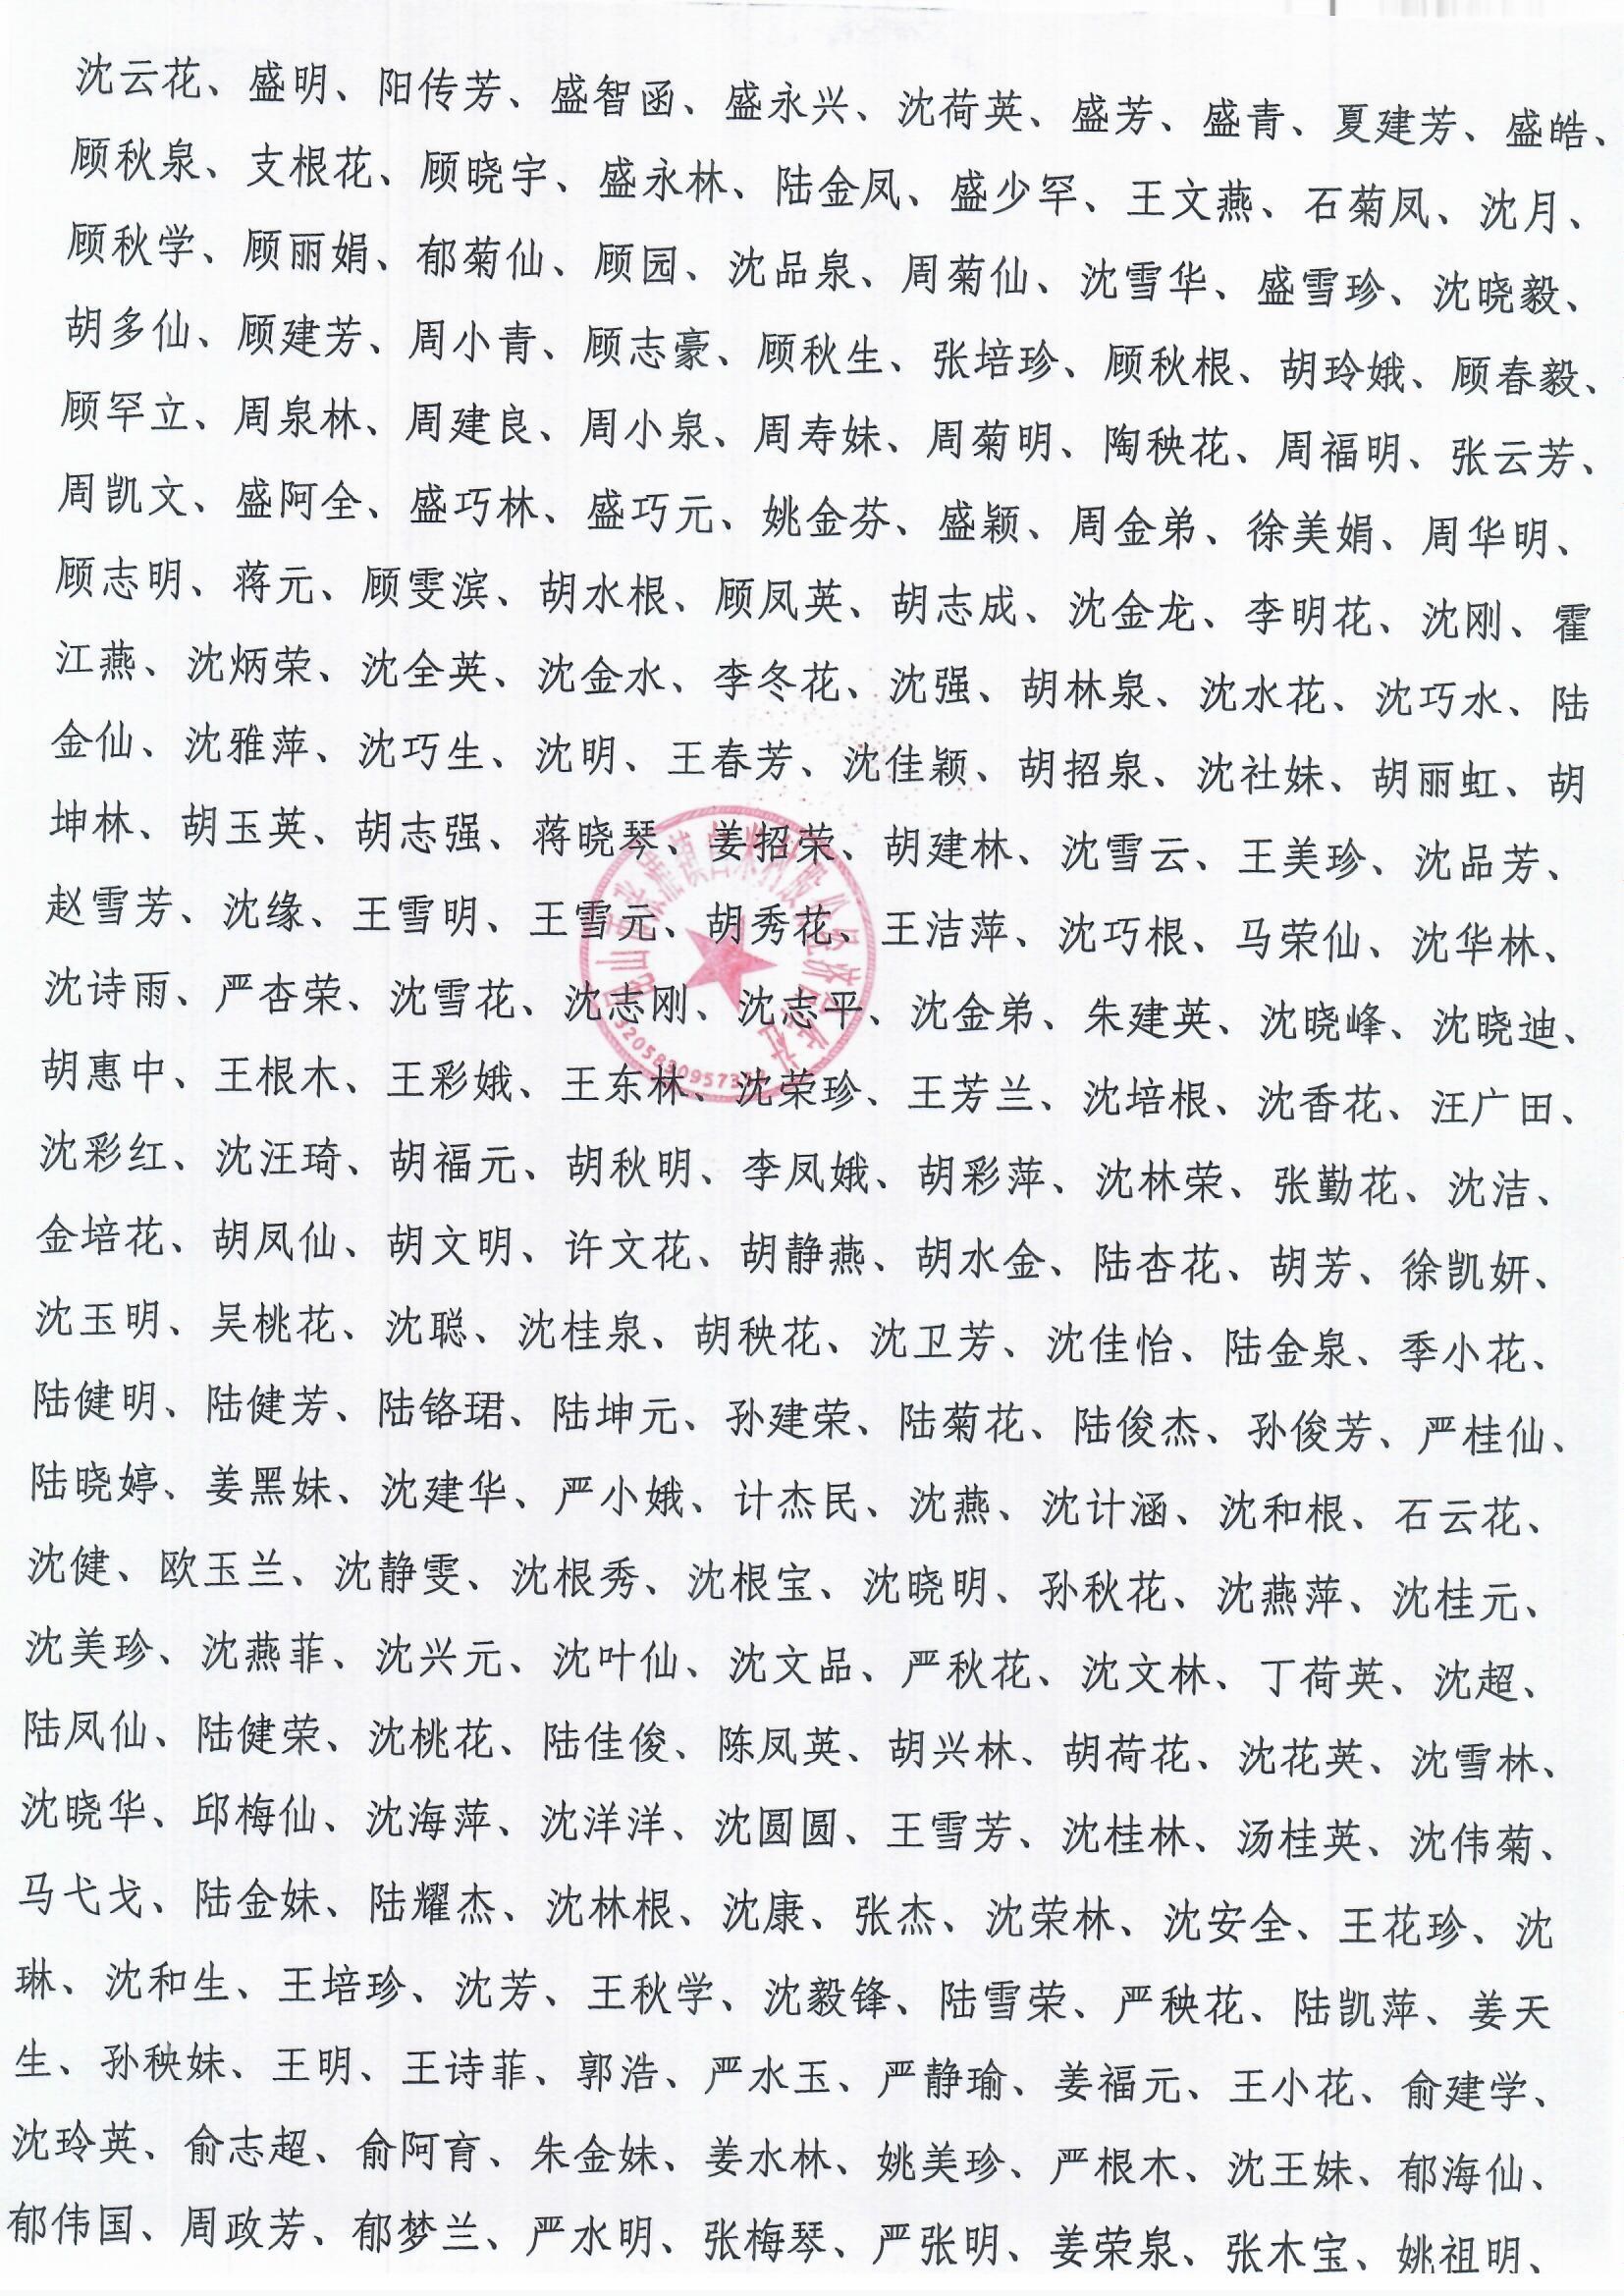 沈云花、盛明、阳传芳、盛智函、盛永兴、沈荷英、盛芳、盛青、夏建芳、盛皓、
顾秋泉、支根花、顾晓宇、盛永林、陆金凤、盛少罕、王文燕、石菊凤、沈月、
顾秋学、顾丽娟、郁菊仙、顾园、沈品泉、周菊仙、沈雪华、盛雪珍、沈晓毅、
胡多仙、顾建芳、周小青、顾志豪、顾秋生、张培珍、顾秋根、胡玲娥、顾春毅、
顾罕立、周泉林、周建良、周小泉、周寿妹、周菊明、陶秧花、周福明、张云芳、
周凯文、盛阿全、盛巧林、盛巧元、姚金芬、盛颖、周金弟、徐美娟、周华明、
顾志明、蒋元、顾雯滨、胡水根、顾凤英、胡志成、沈金龙、李明花、沈刚、霍
江燕、沈炳荣、沈全英、沈金水、李冬花、沈强、胡林泉、沈水花、沈巧水、陆
金仙、沈雅萍、沈巧生、沈明、王春芳、沈佳颖、胡招泉、沈社妹、胡丽虹、胡
坤林、胡玉英、胡志强、蒋晓琴、姜招荣、胡建林、沈雪云、王美珍、沈品芳、
赵雪芳、沈缘、王雪明、王雪元、胡秀花、王洁萍、沈巧根、马荣仙、沈华林、
沈诗雨、严杏荣、沈雪花、沈志刚、沈志平、沈金弟、朱建英、沈晓峰、沈晓迪、
胡惠中、王根木、王彩娥、王东林、沈荣珍、王芳兰、沈培根、沈香花、汪广田、
沈彩红、沈汪琦、胡福元、胡秋明、李凤娥、胡彩萍、沈林荣、张勤花、沈洁、
金培花、胡凤仙、胡文明、许文花、胡静燕、胡水金、陆杏花、胡芳、徐凯妍、
沈玉明、吴桃花、沈聪、沈桂泉、胡秧花、沈卫芳、沈佳怡、陆金泉、季小花、
陆健明、陆健芳、陆铬珺、陆坤元、孙建荣、陆菊花、陆俊杰、孙俊芳、严桂仙、
陆晓婷、姜黑妹、沈建华、严小娥、计杰民、沈燕、沈计涵、沈和根、石云花、
沈健、欧玉兰、沈静雯、沈根秀、沈根宝、沈晓明、孙秋花、沈燕萍、沈桂元、
沈美珍、沈燕菲、沈兴元、沈叶仙、沈文品、严秋花、沈文林、丁荷英、沈超、
陆凤仙、陆健荣、沈桃花、陆佳俊、陈凤英、胡兴林、胡荷花、沈花英、沈雪林、
沈晓华、邱梅仙、沈海萍、沈洋洋、沈圆圆、王雪芳、沈桂林、汤桂英、沈伟菊、
马弋戈、陆金妹、陆耀杰、沈林根、沈康、张杰、沈荣林、沈安全、王花珍、沈
琳、沈和生、王培珍、沈芳、王秋学、沈毅锋、陆雪荣、严秧花、陆凯萍、姜天
生、孙秧妹、王明、王诗菲、郭浩、严水玉、严静瑜、姜福元、王小花、俞建学、
沈玲英、俞志超、俞阿育、朱金妹、姜水林、姚美珍、严根木、沈王妹、郁海仙、
郁伟国、周政芳、郁梦兰、严水明、张梅琴、严张明、姜荣泉、张木宝、姚祖明、